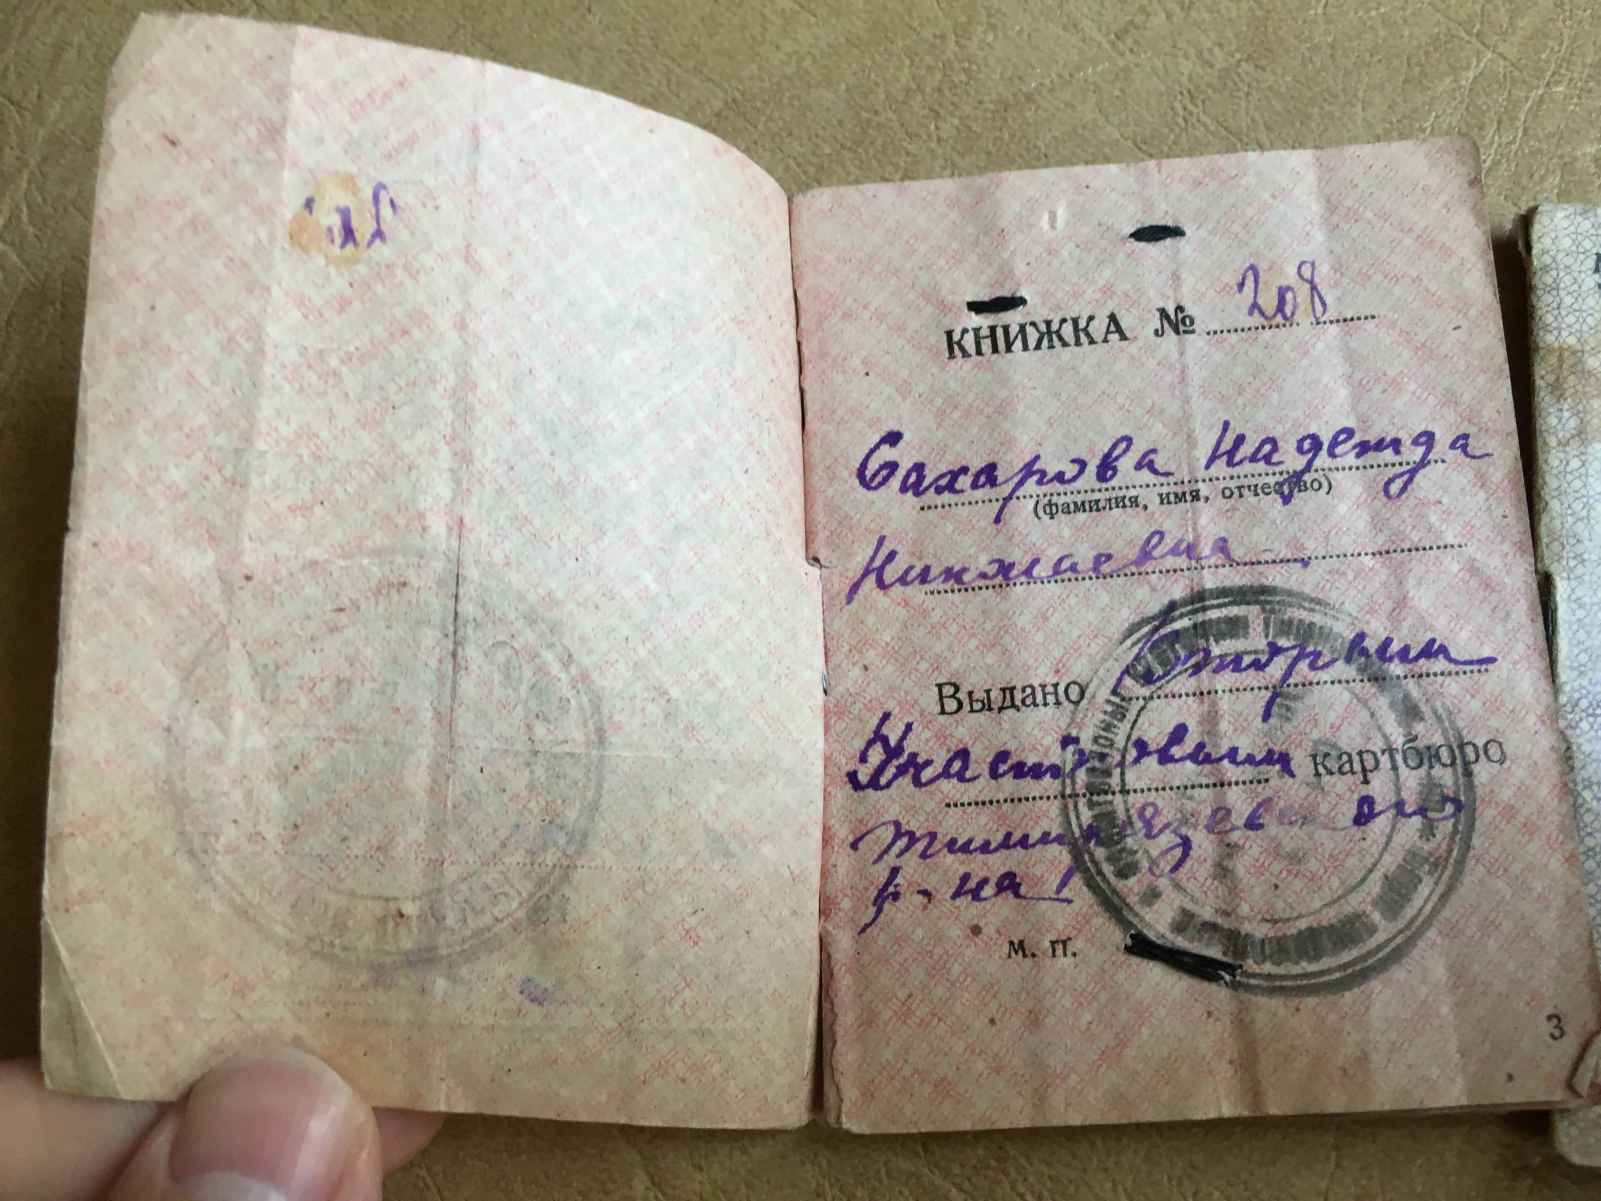 КНИЖКА № 208
Сахарова Надежда
(фамилия, имя, отчество)
Николаевна
Выдано Вторым
Участковым картбюро
Тимирязевского
р-на
М. П.
3